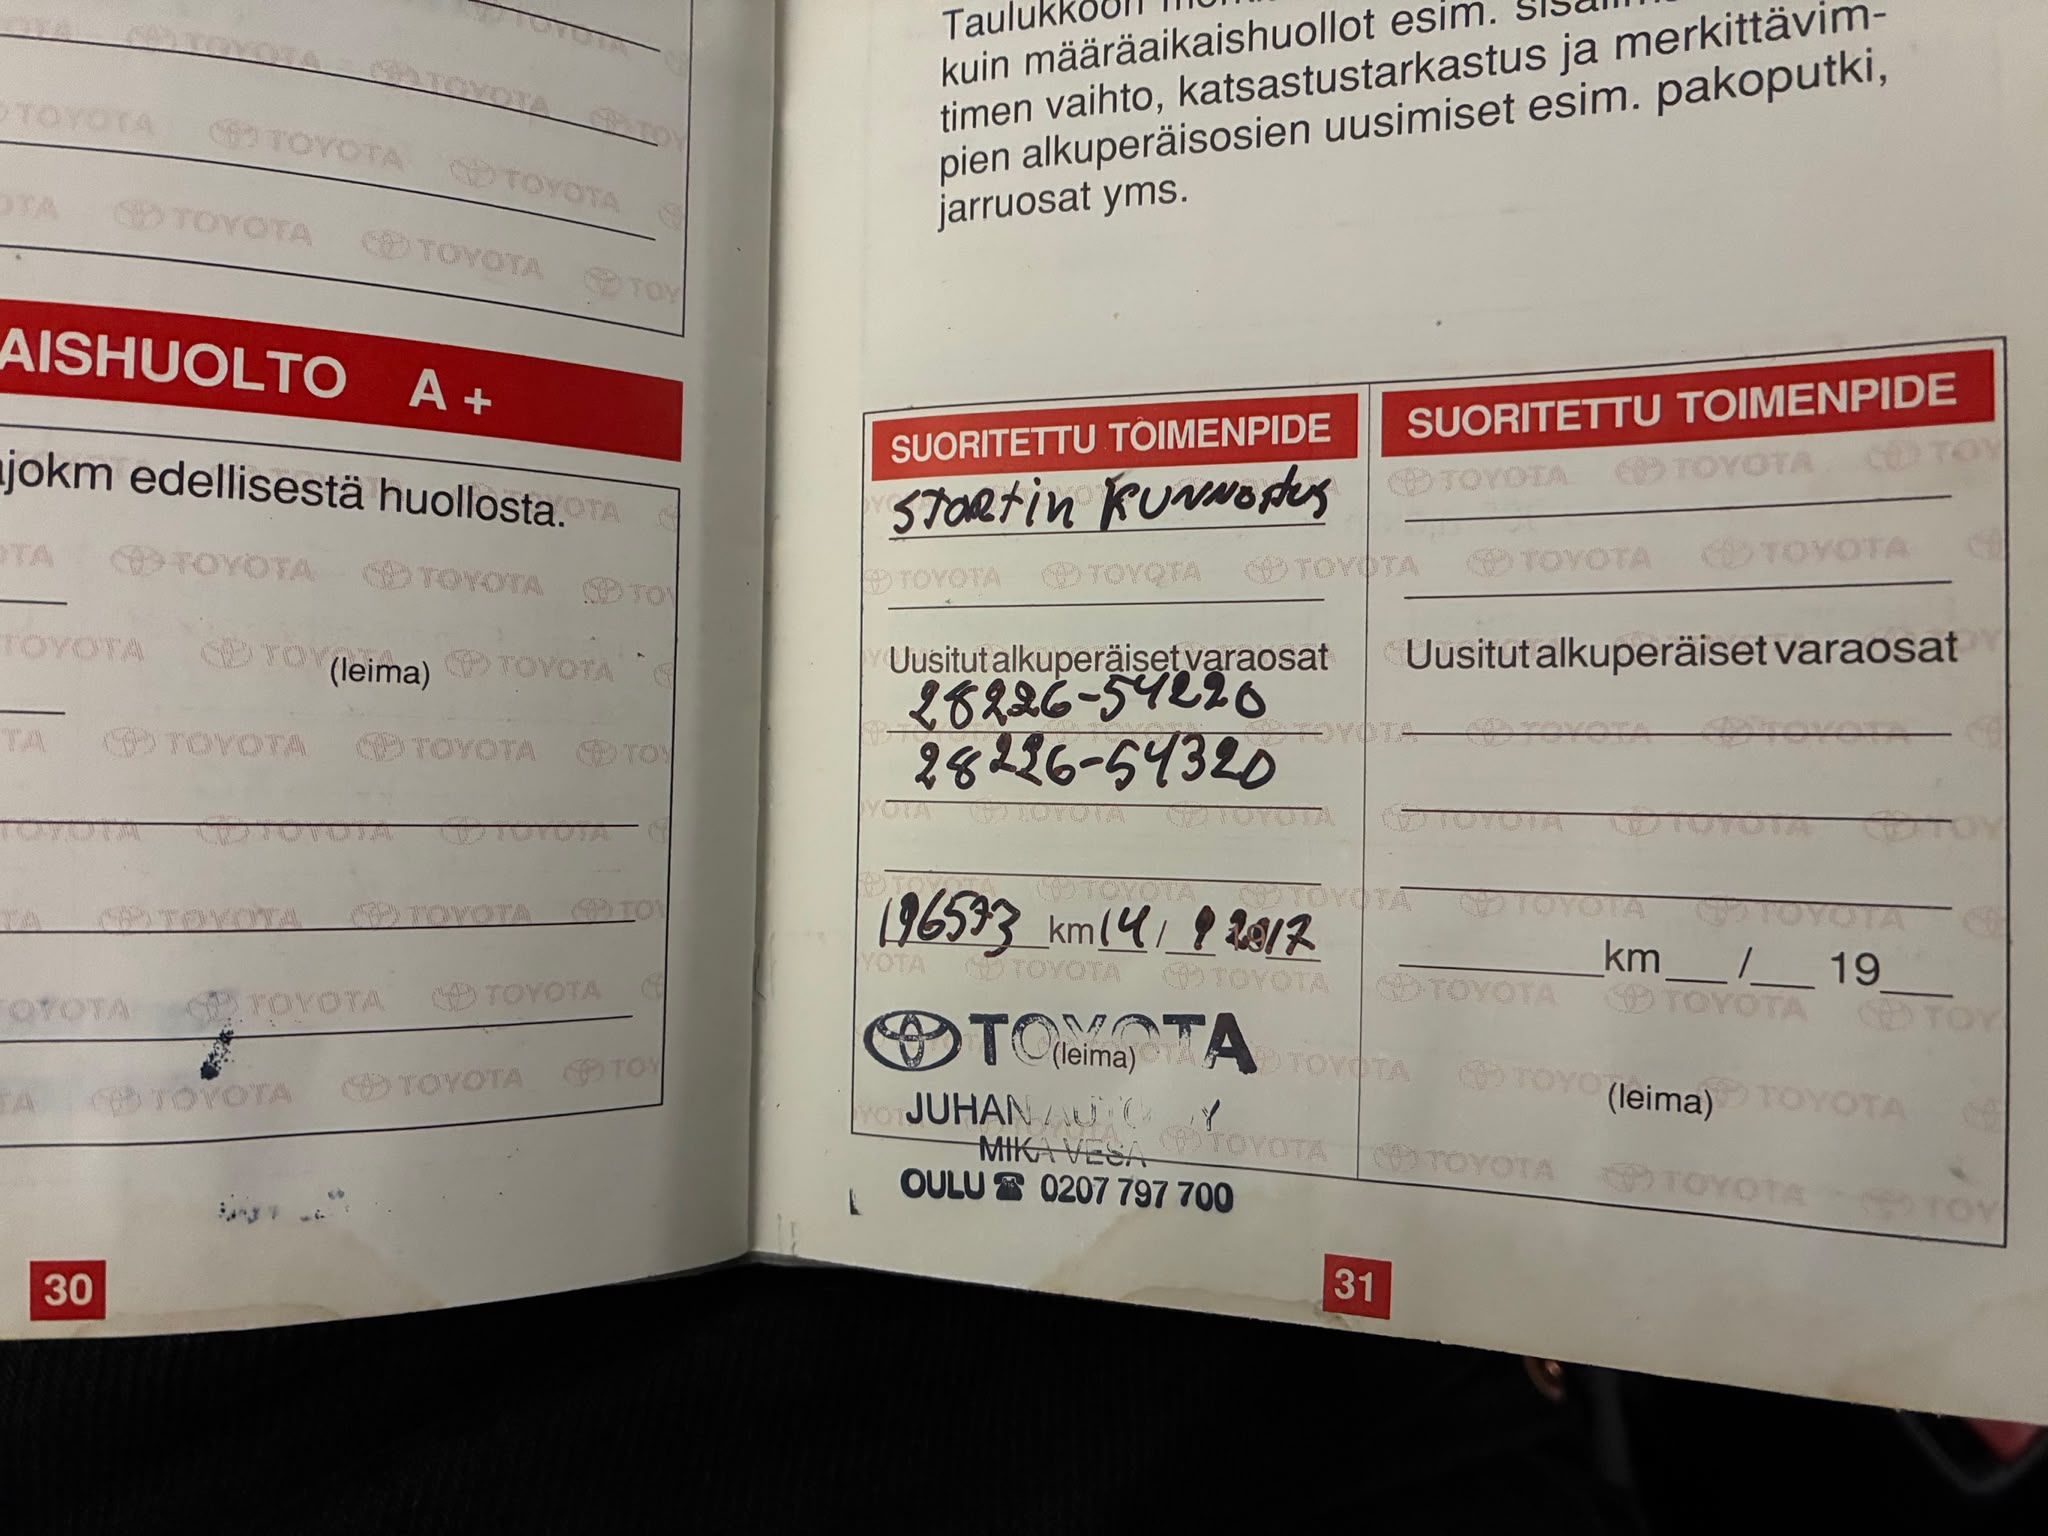 AISHUOLTO A +
ajokm edellisestä huollosta.
(leima)
30
Taulukkoon
kuin määräaikaishuollot esim.
timen vaihto, katsastustarkastus ja merkittävim-
pien alkuperäisosien uusimiset esim. pakoputki,
jarruosat yms.
SUORITETTU TOIMENPIDE
STARTIN KUNNOSTUS
Uusitut alkuperäiset varaosat
28226-54220
28226-54320
km 14 / 9 2017
TOYOTA
(leima)
OULU ☎ 0207 797 700
SUORITETTU TOIMENPIDE
Uusitut alkuperäiset varaosat
km / 19
(leima)
31